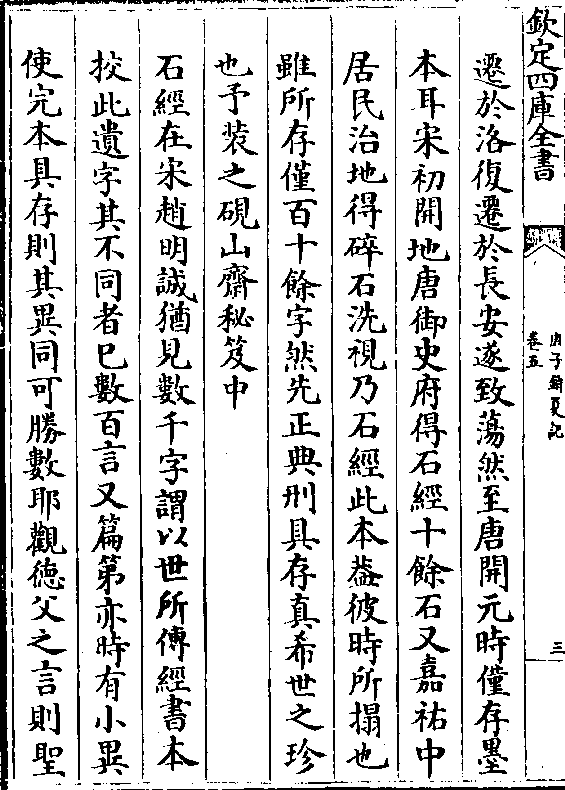 欽定四庫全書
庚子銷夏記
卷五
三
遷於洛復遷於長安遂致蕩然至唐開元時僅存墨
本耳宋初開地唐御史府得石經十餘石又嘉祐中
居民治地得碎石洗視乃石經此本葢彼時所搨也
雖所存僅百十餘字然先正典刑具存真希世之珍
也予装之硯山齋秘笈中
石經在宋趙明誠猶見數千字謂以世所傳經書本
挍此遺字其不同者已數百言又篇第亦時有小異
使完本具存則其異同可勝數耶觀德父之言則聖